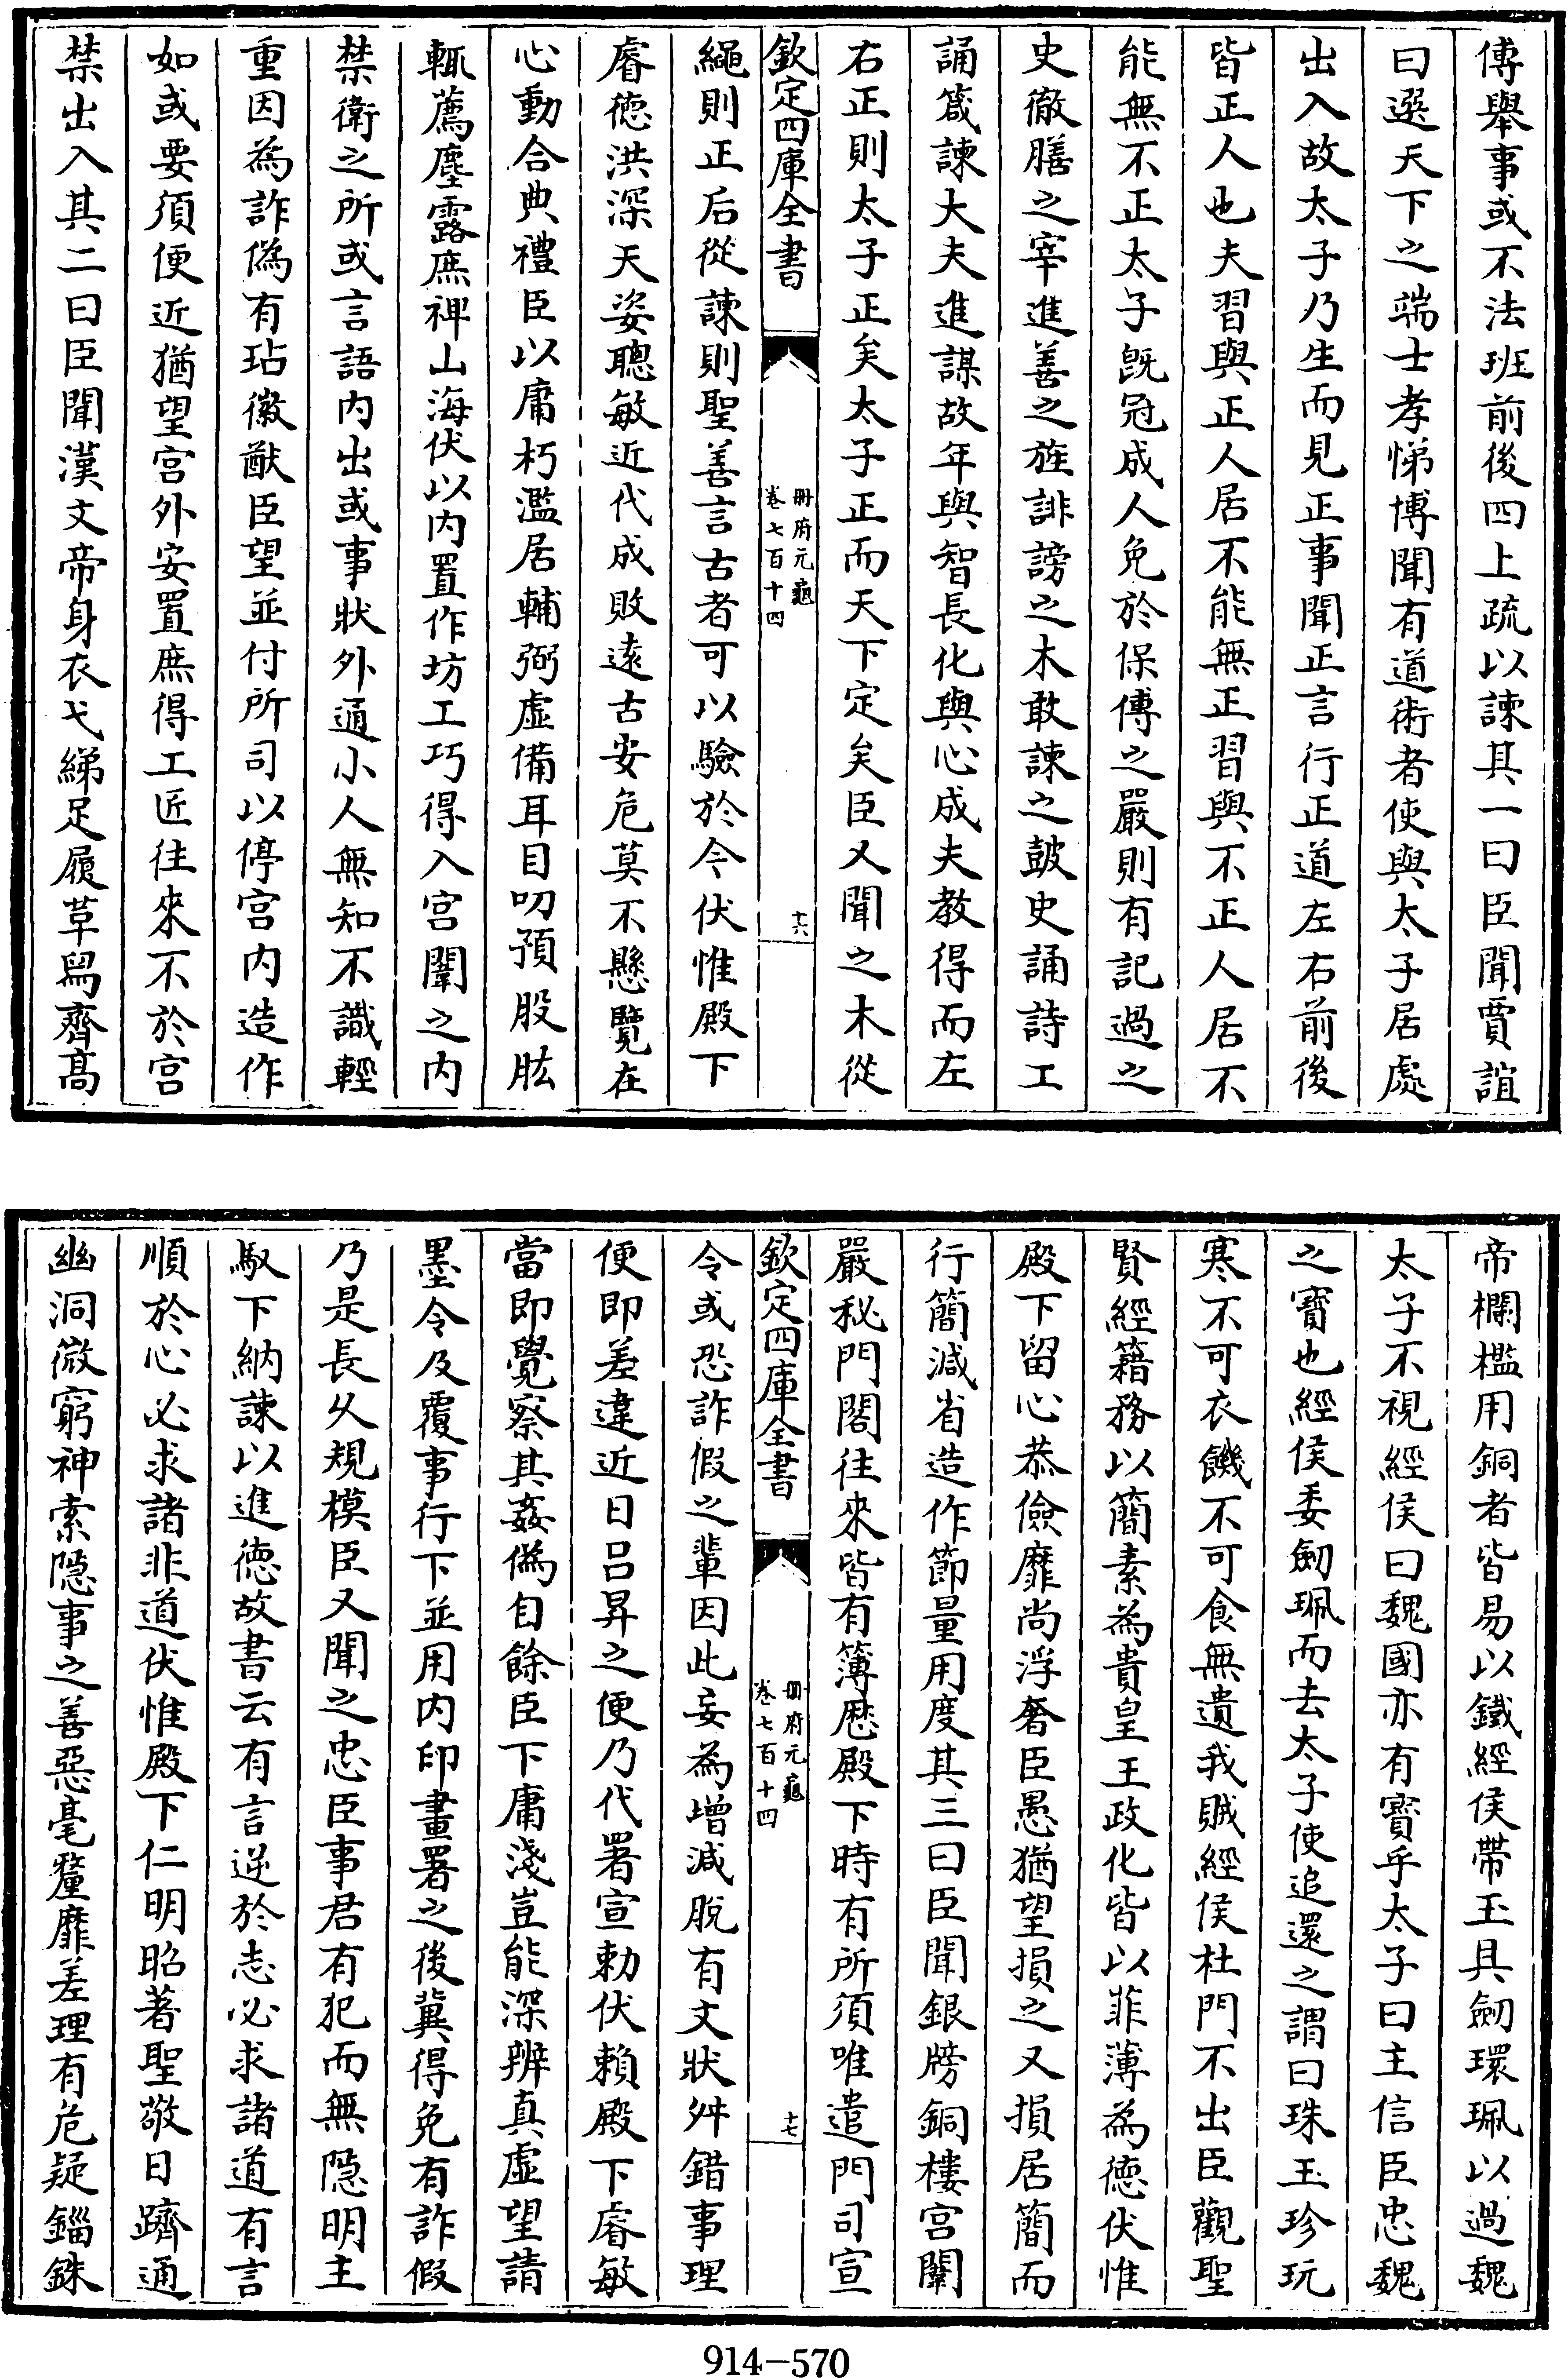 傅舉事或不法班前後四上疏以諫其一曰臣聞賈誼
曰選天下之端士孝悌博聞有道術者使與太子居處
出入故太子乃生而見正事聞正言行正道左右前後
皆正人也夫習與正人居不能無正習與不正人居不
能無不正太子旣冠成人免於保傅之嚴則有記過之
史徹膳之宰進善之旌誹謗之木敢諫之皷史誦詩工
誦箴諫大夫進謀故年與智長化與心成夫教得而左
右正則太子正矣太子正而天下定矣臣又聞之木從
欽定四庫全書
冊府元龜
卷七百十四
十六
繩則正后從諫則聖善言古者可以驗於今伏惟殿下
睿徳洪深天姿聰敏近代成敗遠古安危莫不懸覽在
心動合典禮臣以庸朽濫居輔弼虚備耳目叨預股肱
輒薦塵露庶禆山海伏以内置作坊工巧得入宫闈之内
禁衛之所或言語内出或事狀外通小人無知不識輕
重因為詐偽有玷徽猷臣望並付所司以停宫内造作
如或要須便近猶望宫外安置庶得工匠往來不於宫
禁出入其二曰臣聞漢文帝身衣弋綈足履草舄齊髙
帝欄檻用銅者皆易以鐵經侯帶玉具劒環珮以過魏
太子不視經侯曰魏國亦有寳乎太子曰主信臣忠魏
之寳也經侯委劒珮而去太子使追還之謂曰珠玉珍玩
寒不可衣饑不可食無遺我賊經侯杜門不出臣觀聖
賢經籍務以簡素為貴皇王政化皆以菲薄為徳伏惟
殿下留心恭儉靡尚浮奢臣愚猶望損之又損居簡而
行簡減省造作節量用度其三曰臣聞銀牓銅樓宫闈
嚴秘門閤往來皆有簿厯殿下時有所須唯遣門司宣
欽定四庫全書
冊府元龜
卷七百十四
十七
令或恐詐假之輩因此妄為增減脱有文狀舛錯事理
便即差違近日吕昇之便乃代署宣勅伏賴殿下睿敏
當即覺察其姦偽自餘臣下庸淺豈能深辨真虚望請
墨令及覆事行下並用内印畫署之後冀得免有詐假
乃是長久規模臣又聞之忠臣事君有犯而無隠明主
馭下納諫以進徳故書云有言逆於志必求諸道有言
順於心必求諸非道伏惟殿下仁明昭著聖敬日躋通
幽洞微窮神索隠事之善惡毫釐靡差理有危疑錙銖
914—570